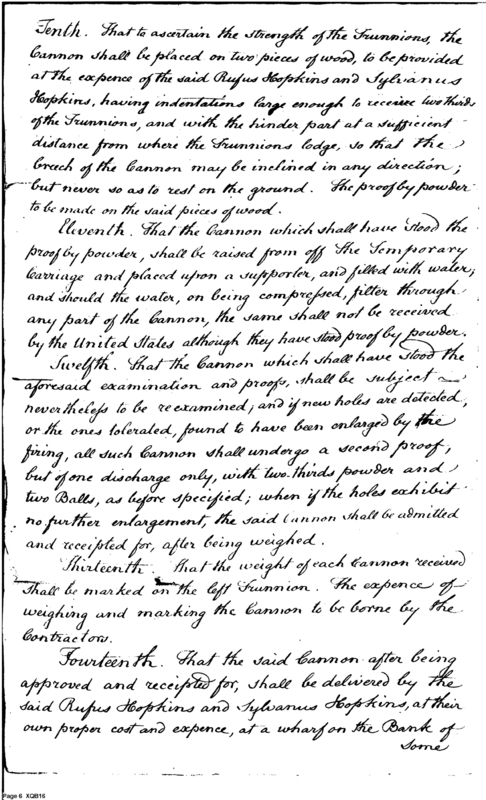 Tenth. That to ascertain the strength of the Trunnions, the
Cannon shall be placed on two pieces of wood, to be provided
at the expence of the said Rufus Hopkins and Sylvanus
Hopkins, having indentations large enough to receive two thirds
of the Trunnions, and with the hinder part at a sufficient
distance from where the Trunnions lodge, so that the
breech of the Cannon may be inclined in any direction;
but never so as to rest on the ground. The proof by powder
to be made on the said pieces of wood.
Eleventh. That the Cannon which shall have stood the
proof by powder, shall be raised from off the Temporary
Carriage and placed upon a supporter, and filled with water;
and should the water, on being compressed, filter through
any part of the Cannon, the same shall not be received
by the United States although they have stood proof by powder.
Twelfth. That the Cannon which shall have stood the
aforesaid examination and proofs, shall be subject
nevertheless to be reexamined, and if new holes are detected,
or the ones tolerated, found to have been enlarged by the
firing, all such Cannon shall undergo a second proof,
but of one discharge only, with two-thirds powder and
two Balls, as before specified; when if the holes exhibit
no further enlargement, the said Cannon shall be admitted
and receipted for, after being weighed.
Thirteenth. That the weight of each Cannon received
shall be marked on the left Trunnion. The expence of
weighing and marking the Cannon to be borne by the
Contractors.
Fourteenth. That the said Cannon after being
approved and receipted for, shall be delivered by the
said Rufus Hopkins and Sylvanus Hopkins, at their
own proper cost and expence, at a wharf on the Bank of
Some
Page 6 XQB16